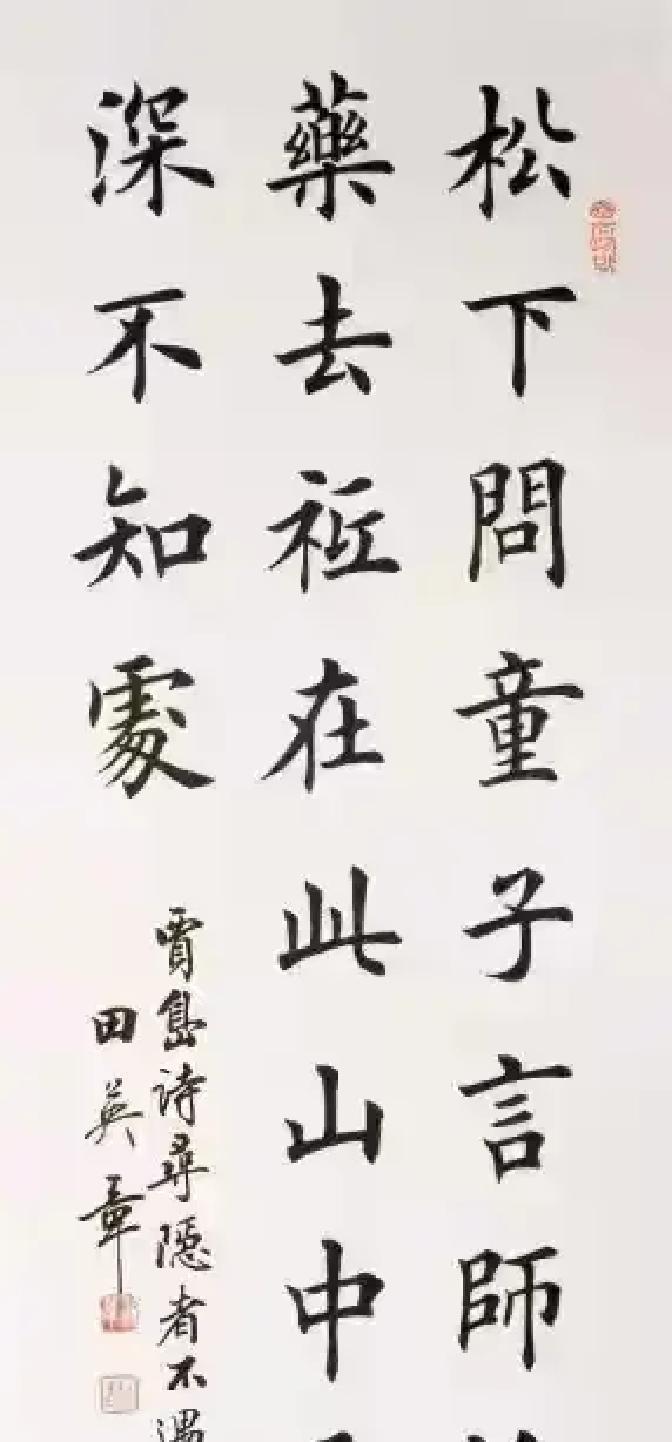 松下問童子言師
藥去祗在此山中
深不知處
賈島詩尋隱者不遇
田英章